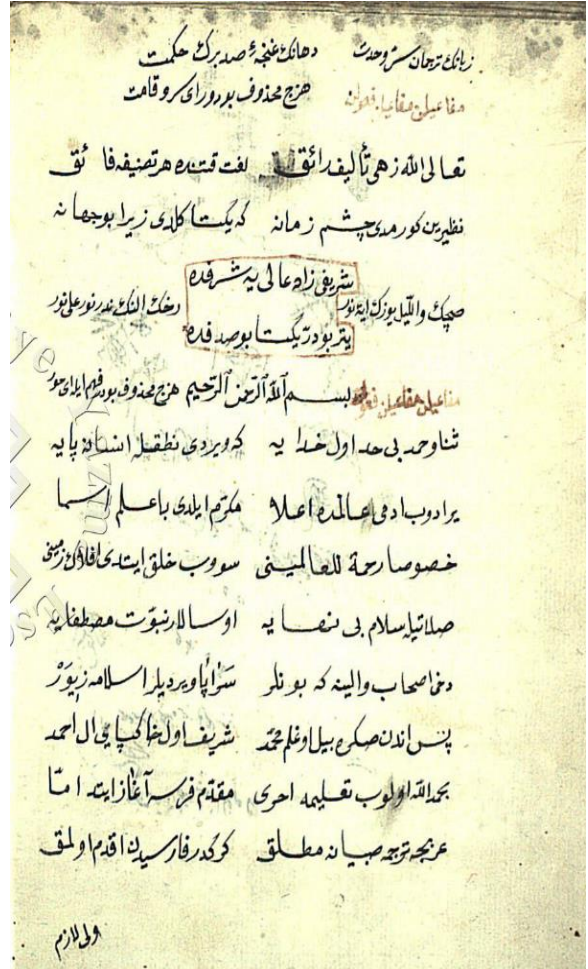 زبانك ترجمان سر وحدت دهانك غنچۀ صد برك حكمت
مفاعيلن مفاعيلن فعولن هزج محذوف بودر اى سرو قامت
تعالى الله زهى تأليف رائق لغت فننده هر تصنيفه فائق
نظيرين كورمدى چشم زمانه كه يكتا كلدى زيرا بو جهانه
شريفى زاده عالى يه شرفده
والليل يوزك آيۀ نور رخك النك ندر نور على نور
يتر بو در يكتا بو صدفده
مفاعيلن مفاعيلن فعولن بسم الله الرحمن الرحيم هزج محذوف بودر فهم ايله اى حور
ثنا وحمد بى حد اول خدايه كه ويردى نطقله انسانه پايه
يرادوب ادمى عالمده اعلا مكرم ايلدى با علم اسما
خصوصا رحمة للعالمينى سووب خلق ايتدى افلاك زمينى
صلاتيله سلام بى نهايه او سالار نبوت مصطفايه
دخى اصحاب والينه كه بونلر سراپا ويرديلر اسلامه زيور
پس اندن صكره بيل اوغلم محمد شريف اول خاكپاى ال احمد
بحمد الله اولوب تعليمه احرى مقدم فرسه آغاز ايتد اما
عربجه ترجمه صبيانه مطلق كركدر فارسيدن اقدم اولمق
ولى لازم